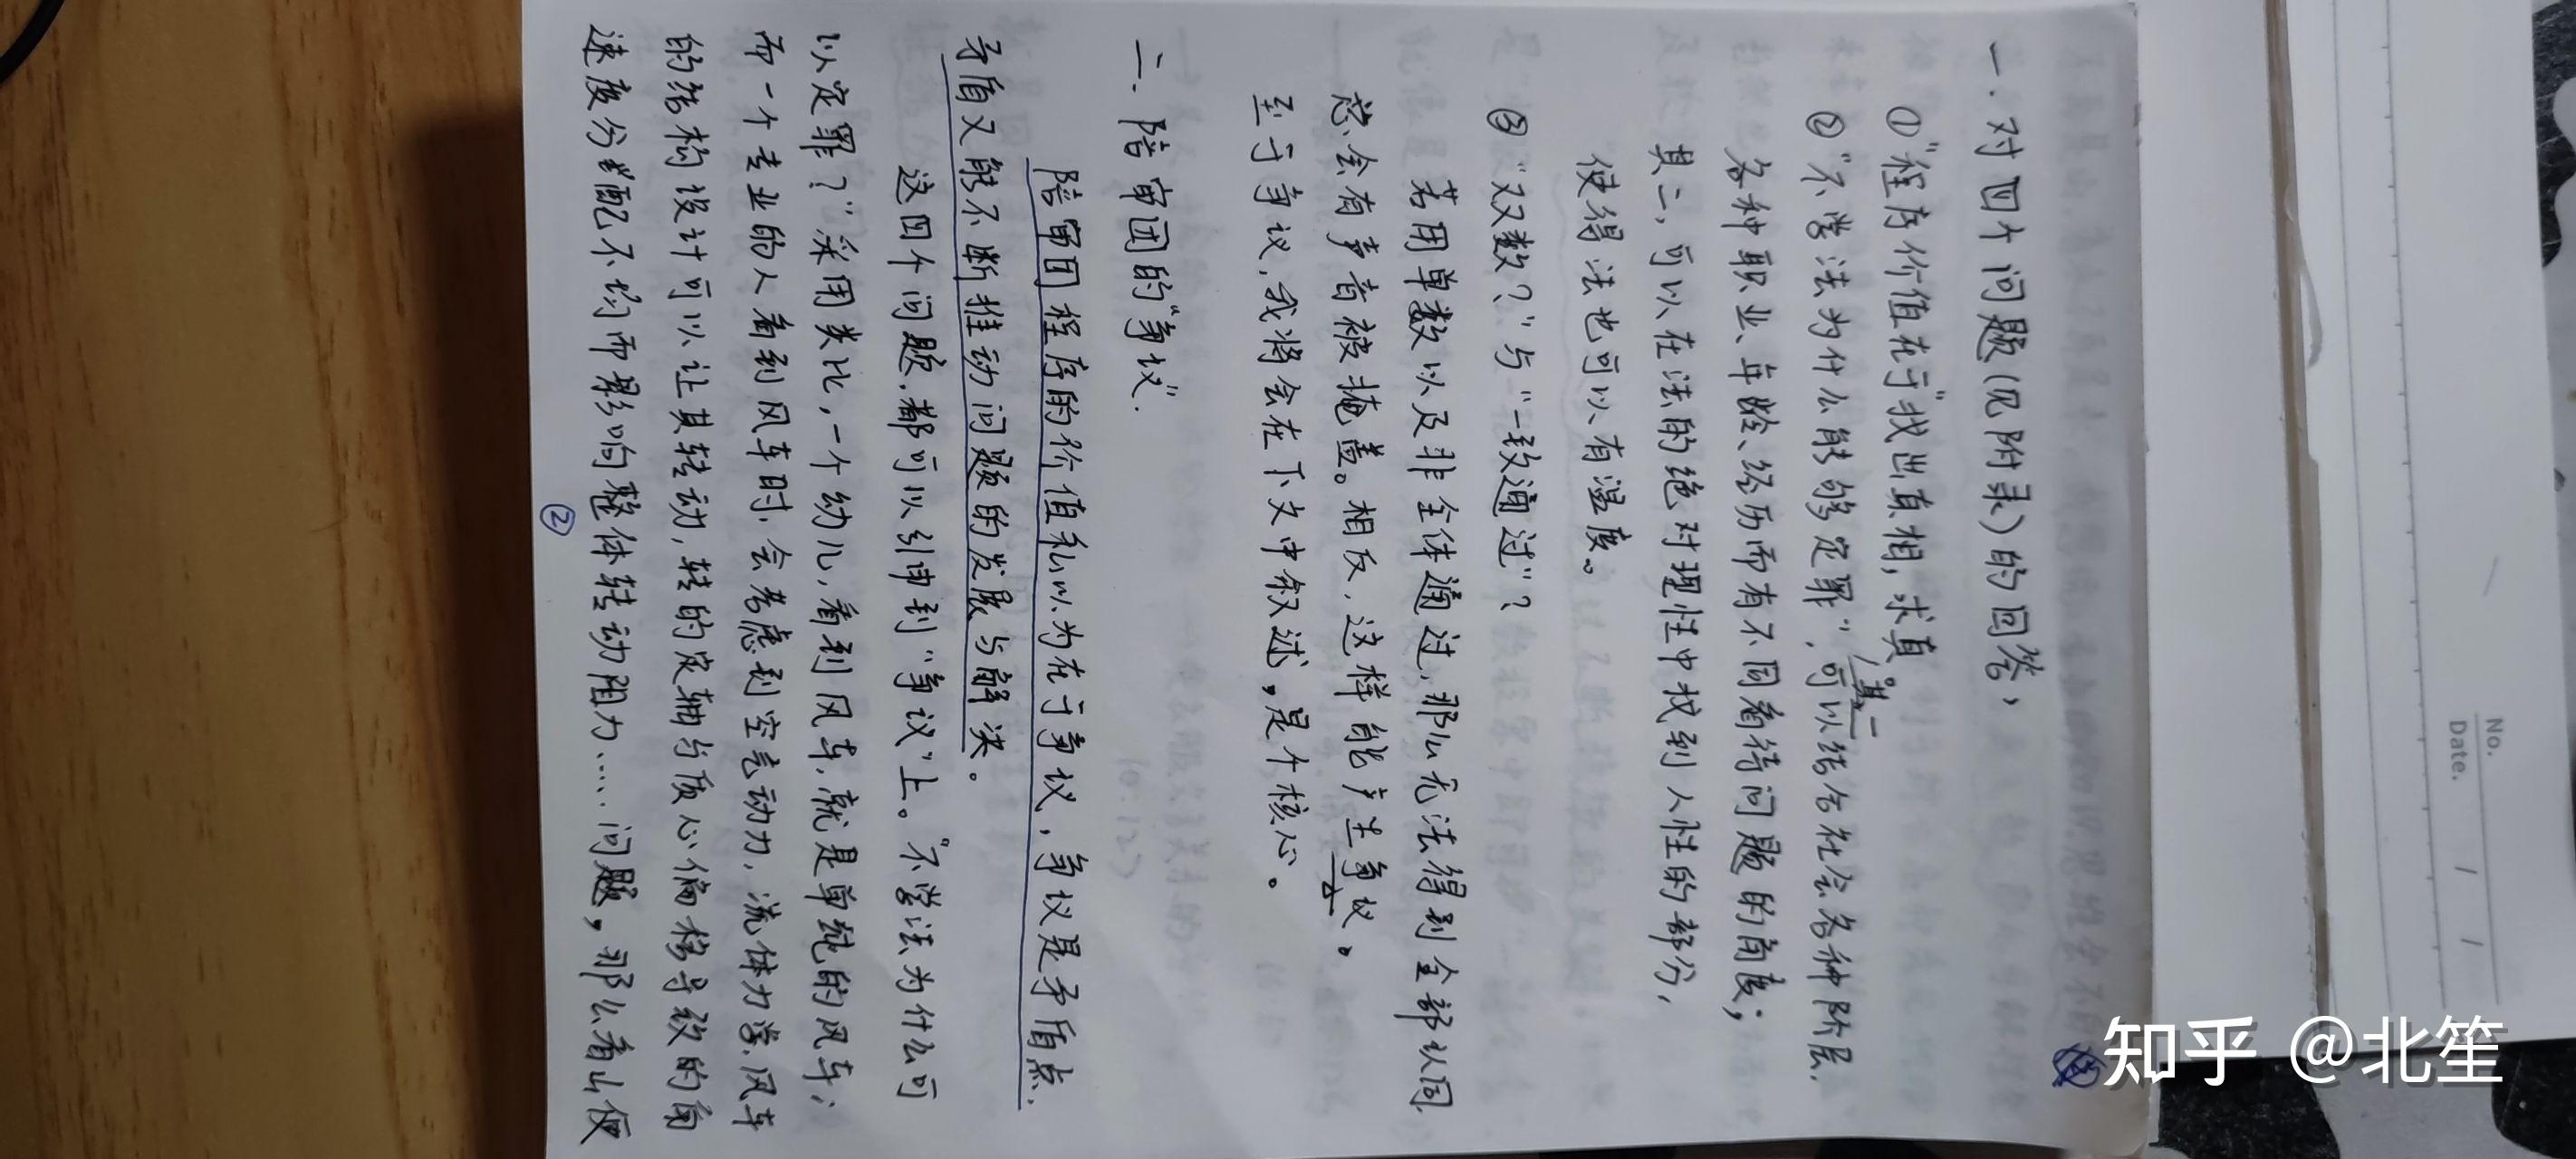 一.对四个问题(见附录)的回答,
①"程序价值在于"找出真相,求真
②"不学法为什么能够定罪",其一可以结合社会各种阶层.
各种职业、年龄、经历而有不同看待问题的角度;
其二,可以在法的绝对理性中找到人性的部分,
使得法也可以有温度。
③"双数?"与"一致通过"?
若用单数以及非全体通过,那么无法得到全部认同.
总会有声音被掩盖。相反,这样能产生争议。
至于争议,我将会在下文中叙述,是个核心。
二.陪审团的"争议".
陪审团程序的价值私以为在于争议,争议是矛盾点.
矛盾又能不断推动问题的发展与解决。
这四个问题.都可以引申到"争议"上。"不学法为什么可
以定罪?"采用类比,一个幼儿,看到风车.就是单纯的风车;
而一个专业的人看到风车时.会考虑到空气动力,流体力学.风车
的结构设计可以让其转动,转的定轴与质心偏移导致的角
速度分配不均而影响整体转动阻力……问题,那么看山便
②
No.
Date. / /
知乎 @北笙